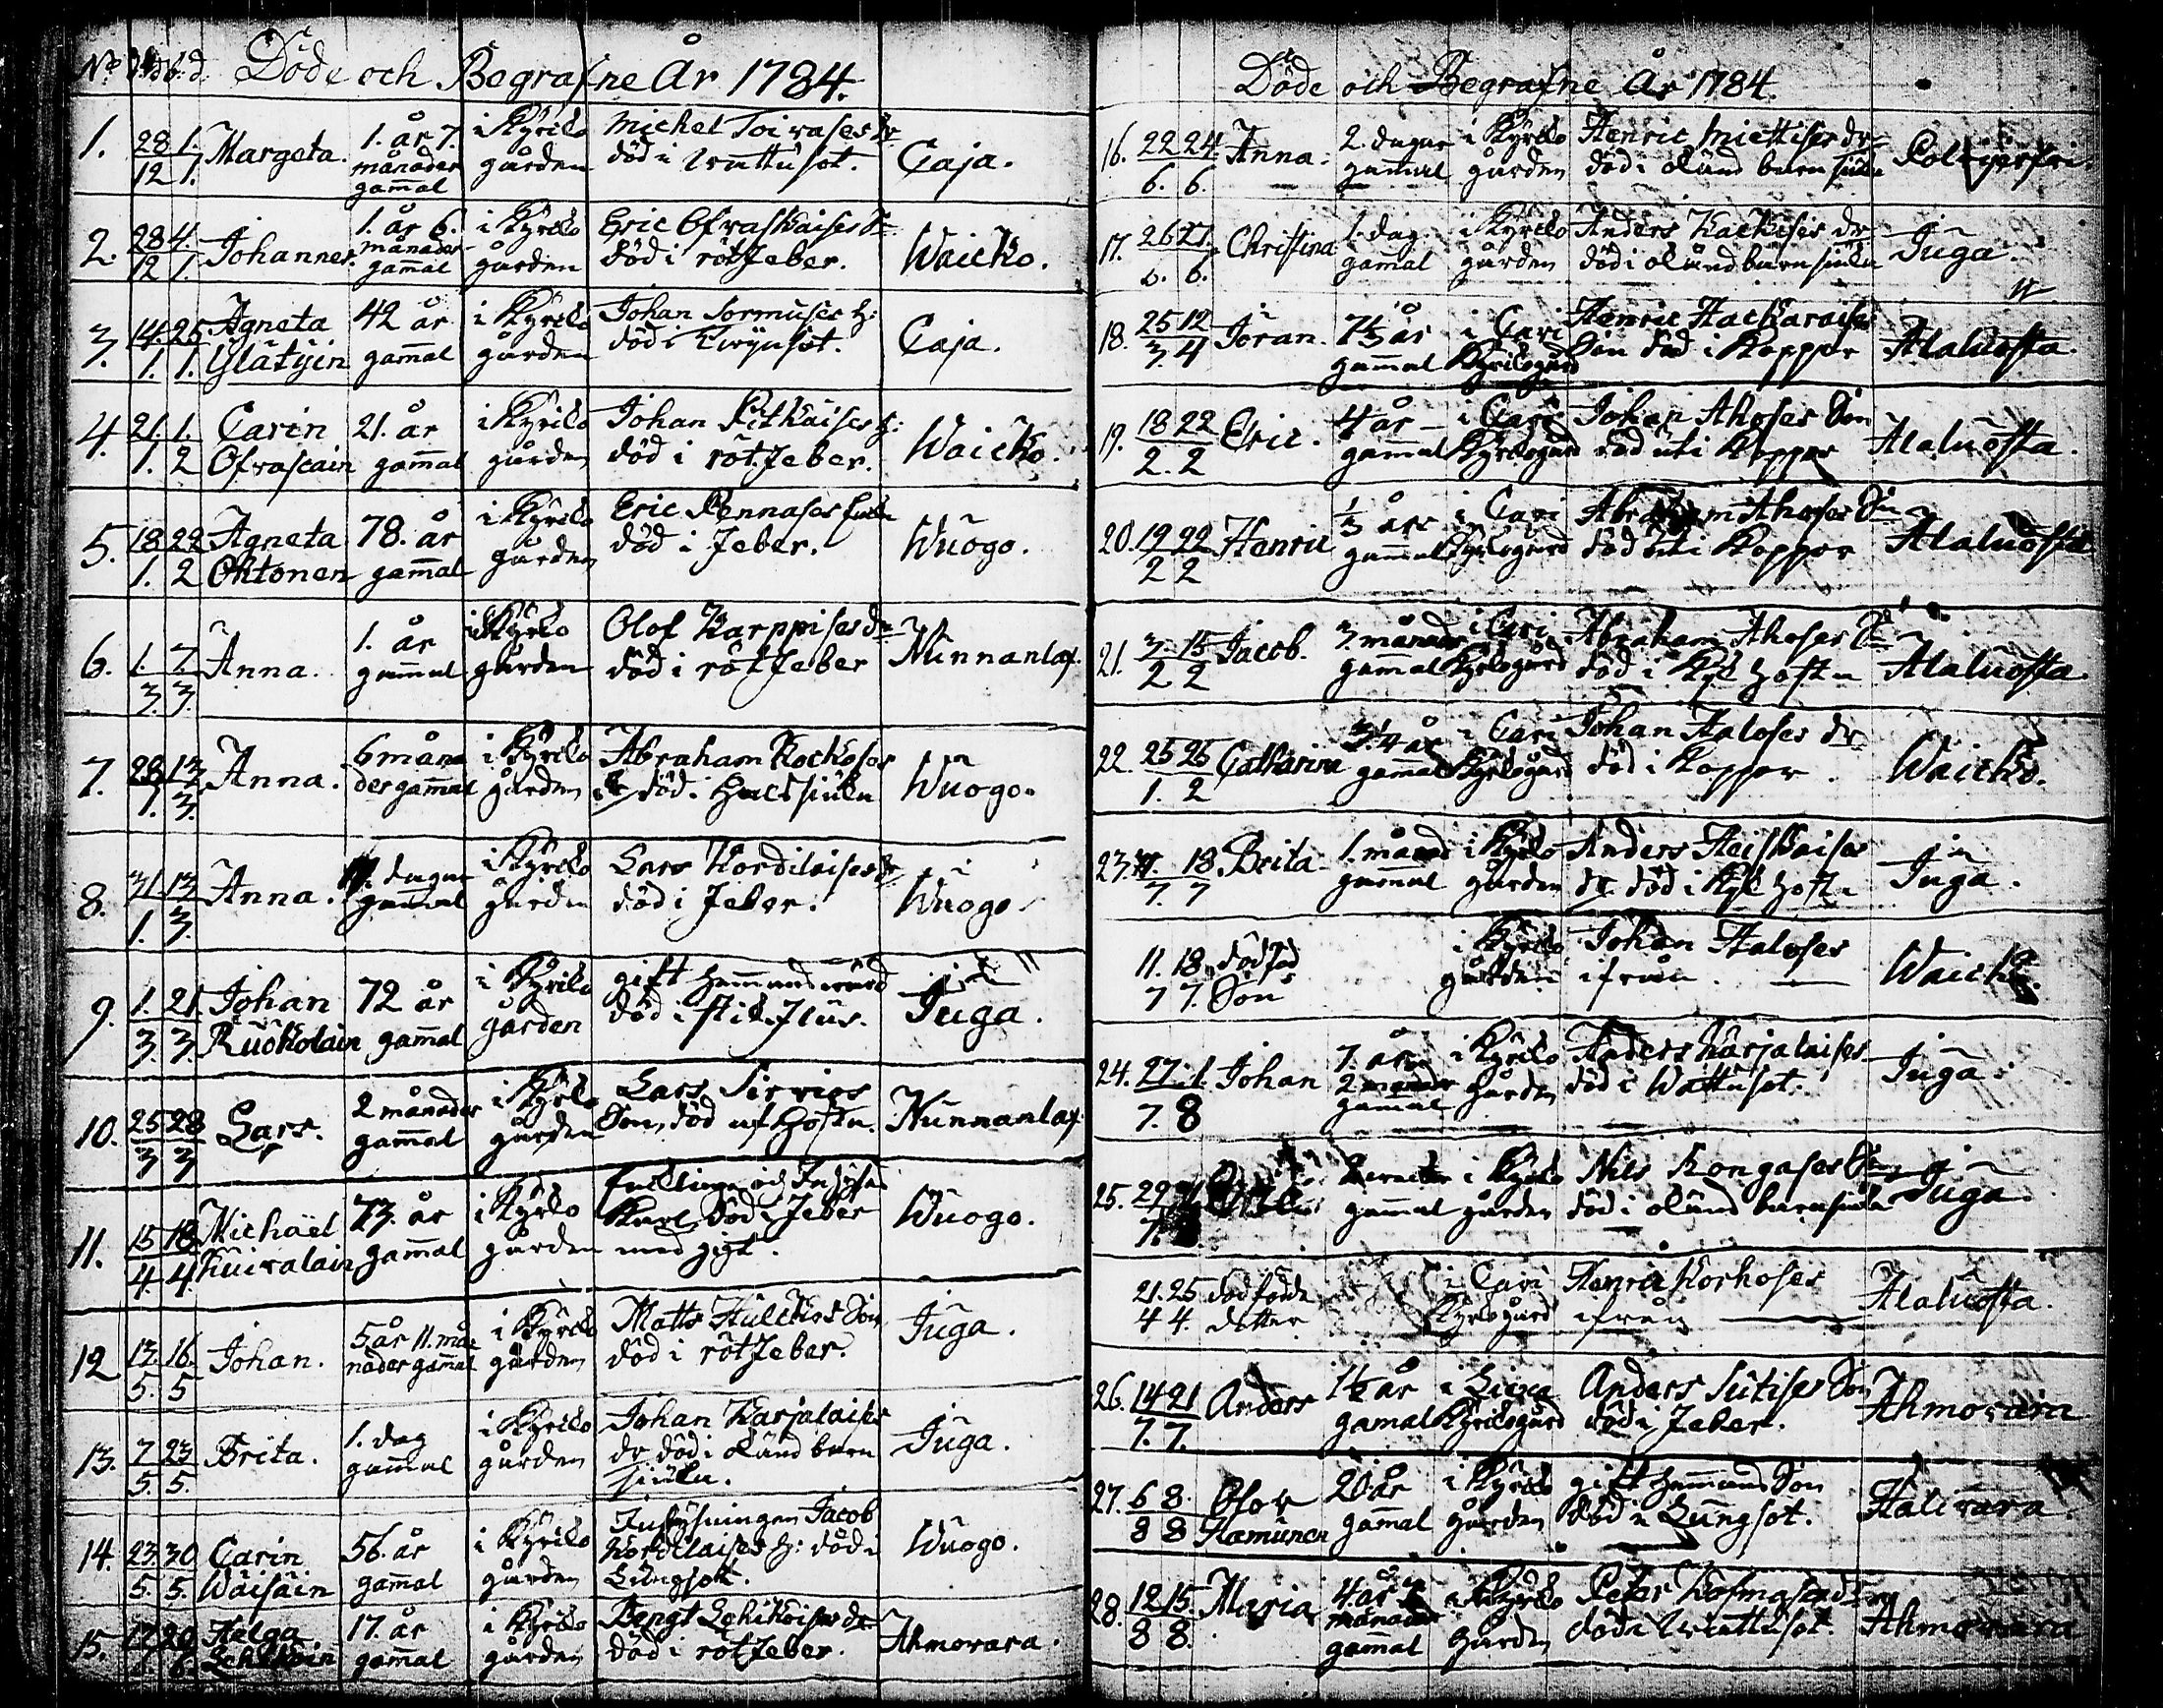 No d. b. d. Döde och Begrafne År 1784.
1. 28/12 1/1. Margeta. 1. år 7. månader gammal i Kyrko gården Michel Toivases dr död i Wattusot. Caja.
2. 28/12 4/1. Johannes. 1. år 6. månader gammal i Kyrko gården Eric Ofvaskaises Sn död i rötfeber. Waicko.
3. 14/1. 25/1. Agneta Glätyin 42 år gammal i Kyrko gården Johan Sormuses h: död i Twijnsot. Caja.
4. 21/1. 1/2 Carin Ofvascain 21. år gammal i Kyrko gården Johan Pitkäises h: död i röt.feber. Waicko.
5. 18/1. 22/2 Agneta Oktonen 78. år gammal i Kyrko gården Eric Pennases Enka död i feber. Wuogo.
6. 1/3. 7/3. Anna. 1. år gammal i Kyrko gården Olof Karppises dr död i rötfeber Nunnanlax.
7. 28/1. 13/3. Anna. 6 måna der gammal i Kyrko gården Abraham Kockoses dr död i halssiuka Wuogo.
8. 31/1. 13/3. Anna. dagar gammal i Kyrko gården Lars Kordilaises dr död i feber. Wuogo.
9. 1/3. 21/3. Johan Ruokolain 72 år gammal i Kyrko gården gift hemmans värd död i stik.flus. Juga.
10. 25/3 28/3 Lars. 2 månader gammal i Kyrko gården Lars Sirvios Son, död af hosta. Nunnanlax.
11. 15/4. 18/4. Michael Kuivalain 73. år gammal i Kyrko gården Enkling och Inhyses Karl, död i feber med gigt. Wuogo.
12 13/5. 16/5 Johan. 5 år 11. må nader gammal i Kyrko gården Matts Hulckos Son död i rötfeber. Juga.
13. 7/5 23/5. Brita. 1. dag gammal i Kyrko gården Johan Karjalaises dr död i okänd barn siuka. Juga.
14. 23/5. 30/5. Carin Wäisäin 56. år gammal i Kyrko gården Inhysningen Jacob Kordelaises h: död i Lungsot. Wuogo.
15. Helga Lehikoin 17. år gammal i Kyrko gården Bengt Lehikoises dr död i rötfeber. Ahmovara.
Döde och Begrafne År 1784.
16. 22/6. 24/6. Anna. 2. dagar gammal i Kyrko gården Henric Miettises dr död i okänd barn siuka Polvijärfvi.
17. 26/6. 27/6. Christina 1. dag gammal i Kyrko gården Anders Kackises dr död i okänd barn siuka Juga.
18. 25/3. 12/4 Jöran. 7 1/3 år gammal i Cavi Kyrkogård Henric Hackaraises Son död i Koppor Alaluosta.
19. 18/2. 22/2 Eric. 4 år gammal i Cavi Kyrkogård Johan Ahoses Son död uti Koppor Alaluosta.
20. 19/2 22/2 Henric 1/3 års gammal i Cavi Kyrkogård Abraham Ahoses Sn död uti Koppor Alaluosta
21. 3/2 15/2 Jacob. 3. månader gamal i Cavi Kyrkogård Abraham Ahoses Sn död i Kyk hosta Alaluosta.
22. 25/1. 25/2 Catharina 3. 1/4 år gammal i Cavi Kyrkogård Johan Haloses dr död i Koppor. Waicko.
23. 18/7 Brita 1. månad gammal i Kyrko gården Anders Heiskaises dr död i Kyk hosta Juga.
11/7 18/7. dödfödd Son i Kyrko gården Johan Haloses ifrån Waicko.
24. 27/7. 1/8 Johan 7. år 2 månader gammal i Kyrko gården Anders Karjalaises död i Wattusot. Juga.
25. 29/7. gammal i Kyrko gården Nils Kongases Son död i okänd barnsiuka Juga.
21/4 25/4. dödfödde dotter i Cavi Kyrkogård Henric Korhoses ifrån Alaluosta.
26. 14/7. 21/7. Anders 1 1/2 år gamal i Kyrkogård Anders Sutises Son död i feber. Ahmovara
27. 6/8 8/8 Olov Hamunen 20 år gammal i Kyrko gården gift hemmans Son död i Lungsot. Halivara.
28. 12/8 15/8. Maria 4. år månader gammal i Kyrko gården Peter död i Wattusot. Ahmovara